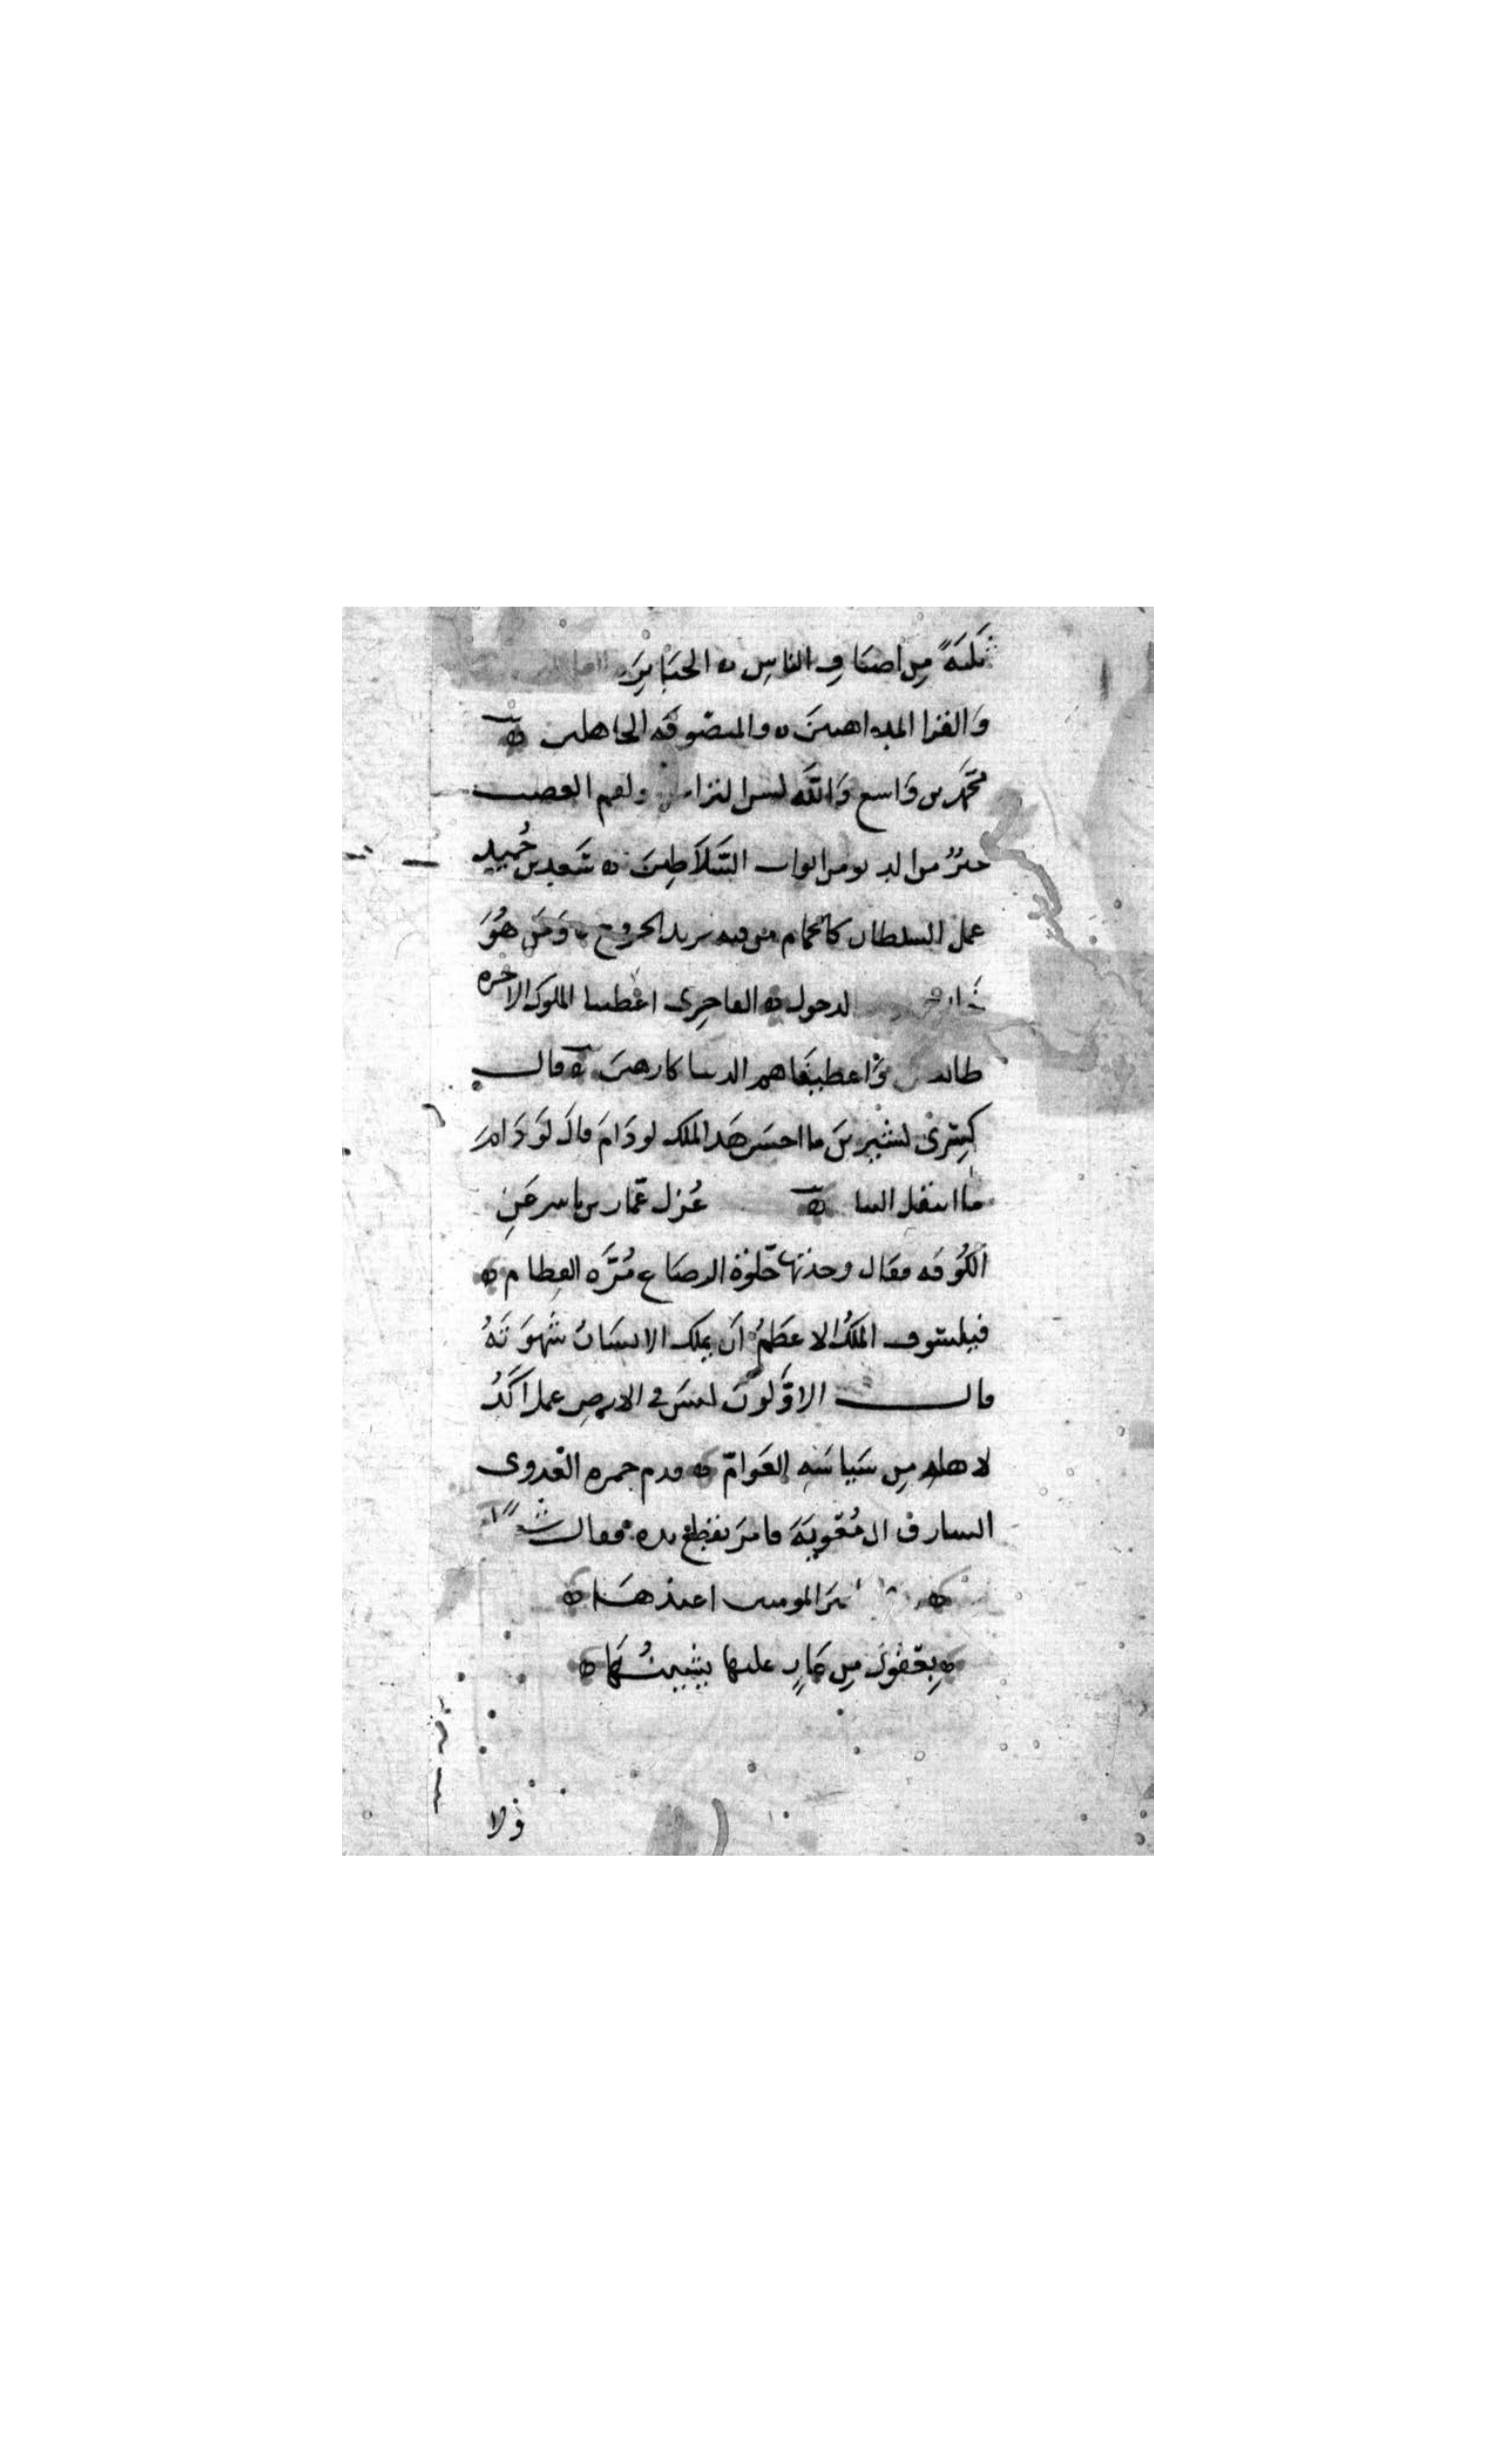 ثلثة من اصناف الناس ه الجبابرة
والقرا المداهنين ه والمتصوفه الجاهلين ه
محمد بن واسع والله لسف التراب ولقم القصب
خير من الدنو من ابواب السلاطين ه سعيد بن حميد
عمل السلطان كالحمام من فيه يريد الخروج ه ومن هو
خارج الدخول ه الهاجرى اعطينا الملوك الاخره
طالبين واعطيناهم الدنيا كارهين ه قال
كسرى لشيرين ما احسن هذا الملك لو دام قال لو دام
ما انتقل الينا ه عزل عمار بن ياسر عن
الكوفه فقال وجدتها حلوة الرضاع مره الفطام ه
فيلسوف الملك الاعظم ان يملك الانسان شهوته
قال الاولون ليس فى الارض عمل اكد
لاهله من سياسه العوام ه قدم حمزه العدوى
السارق الى معوية فامر بقطع يده فقال شعرا
ه المومنين اعيذها ه
ه بعفوك من عار عليها يشينها ه
ولا